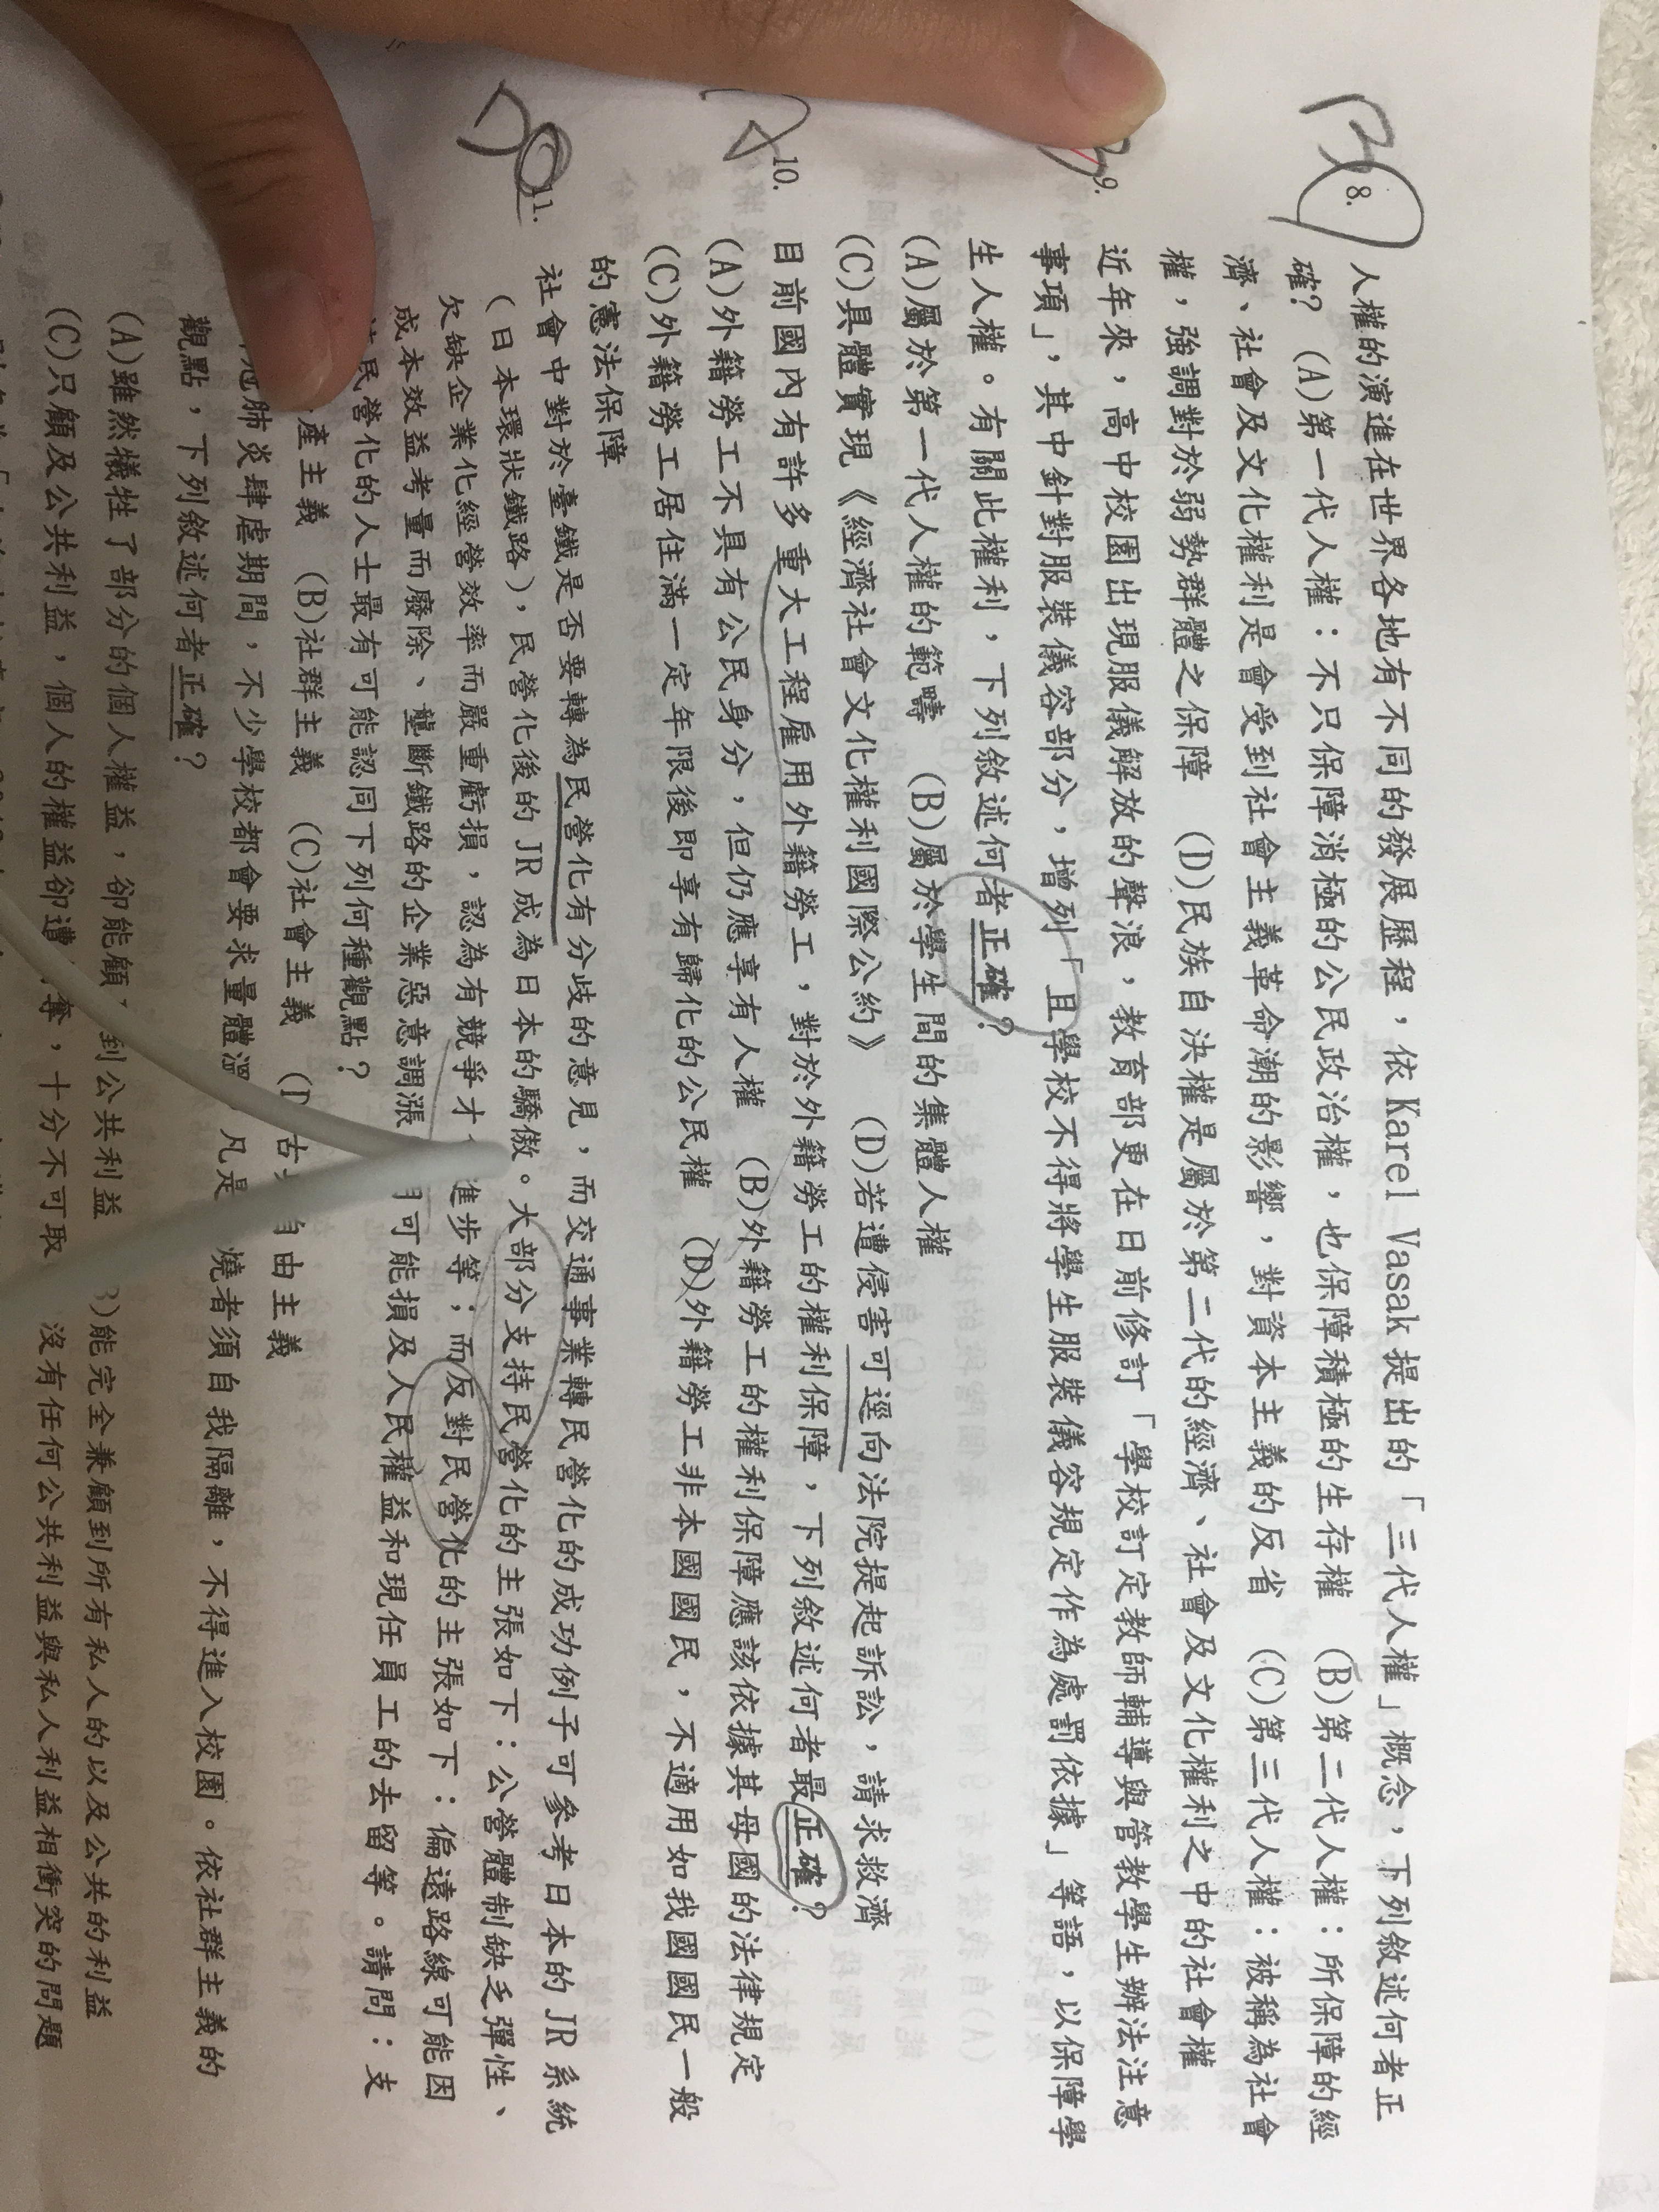 8. 人權的演進在世界各地有不同的發展歷程，依 Karel Vasak 提出的「三代人權」概念，下列敘述何者正
確? (A)第一代人權：不只保障消極的公民政治權，也保障積極的生存權 (B)第二代人權：所保障的經
濟、社會及文化權利是會受到社會主義革命潮的影響，對資本主義的反省 (C)第三代人權：被稱為社會
權，強調對於弱勢群體之保障 (D)民族自決權是屬於第二代的經濟、社會及文化權利之中的社會權
9. 近年來，高中校園出現服儀解放的聲浪，教育部更在日前修訂「學校訂定教師輔導與管教學生辦法注意
事項」，其中針對服裝儀容部分，增列「且學校不得將學生服裝儀容規定作為處罰依據」等語，以保障學
生人權。有關此權利，下列敘述何者正確?
(A)屬於第一代人權的範疇 (B)屬於學生間的集體人權
(C)具體實現《經濟社會文化權利國際公約》 (D)若遭侵害可逕向法院提起訴訟，請求救濟
10. 目前國內有許多重大工程雇用外籍勞工，對於外籍勞工的權利保障，下列敘述何者最正確?
(A)外籍勞工不具有公民身分，但仍應享有人權 (B)外籍勞工的權利保障應該依據其母國的法律規定
(C)外籍勞工居住滿一定年限後即享有歸化的公民權 (D)外籍勞工非本國國民，不適用如我國國民一般
的憲法保障
11. 社會中對於臺鐵是否要轉為民營化有分歧的意見，而交通事業轉民營化的成功例子可參考日本的 JR 系統
(日本環狀鐵路)，民營化後的 JR 成為日本的驕傲。大部分支持民營化的主張如下：公營體制缺乏彈性、
欠缺企業化經營效率而嚴重虧損，認為有競爭才 進步等；而反對民營化的主張如下：偏遠路線可能因
成本效益考量而廢除、壟斷鐵路的企業惡意調漲 可能損及人民權益和現任員工的去留等。請問：支
民營化的人士最有可能認同下列何種觀點?
產主義 (B)社群主義 (C)社會主義 (D 自由主義
冠肺炎肆虐期間，不少學校都會要求量體溫 凡是 燒者須自我隔離，不得進入校園。依社群主義的
觀點，下列敘述何者正確?
(A)雖然犧牲了部分的個人權益，卻能顧 到公共利益 )能完全兼顧到所有私人的以及公共的利益
(C)只顧及公共利益，個人的權益卻遭 奪，十分不可取 沒有任何公共利益與私人利益相衝突的問題